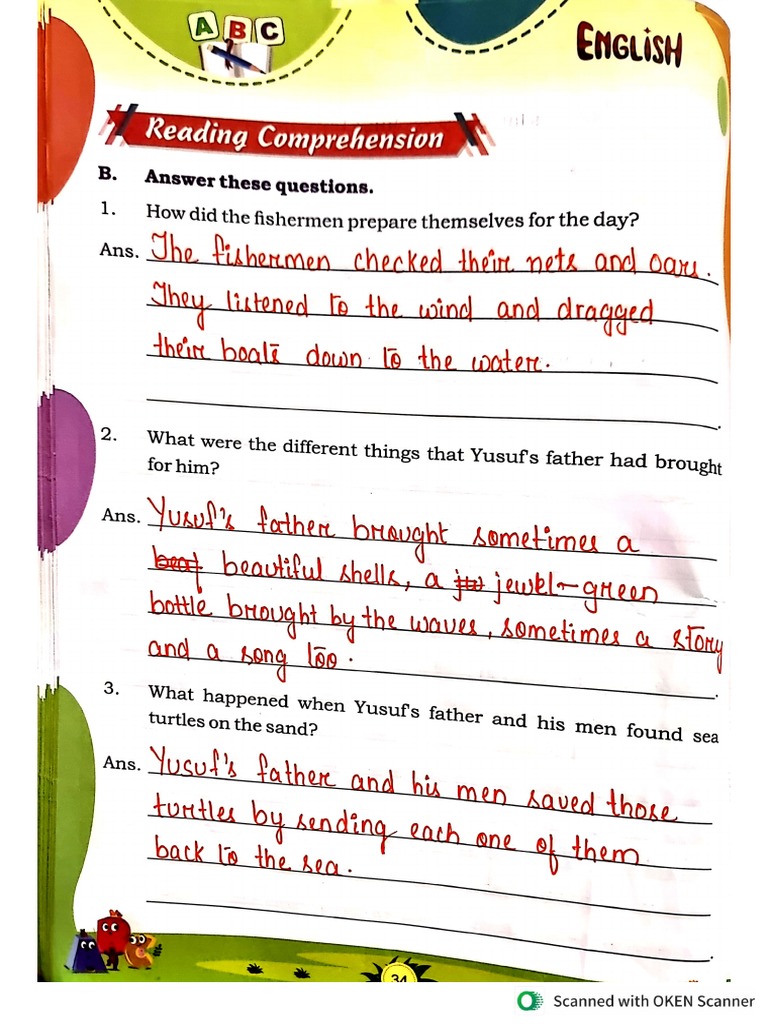 A B C
ENGLISH
Reading Comprehension
B. Answer these questions.
1. How did the fishermen prepare themselves for the day?
Ans. The fishermen checked their nets and oars.
They listened to the wind and dragged
their boats down to the water.
2. What were the different things that Yusuf's father had brought
for him?
Ans. Yusuf's father brought sometimes a
beautiful shells, a jewel-green
bottle brought by the waves, sometimes a story
and a song too.
3. What happened when Yusuf's father and his men found sea
turtles on the sand?
Ans. Yusuf's father and his men saved those
turtles by sending each one of them
back to the sea.
34
Scanned with OKEN Scanner